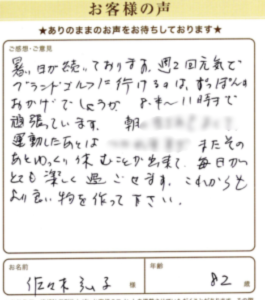 お客様の声
★ありのままのお声をお待ちしております★
ご感想・ご意見
暑い日が続いております。週2回元気で
グランドゴルフに行けるのは、すっぽんの
おかげでしょうか 8:半〜11時まで
頑張っています。 朝
運動したあとは またその
あとゆっくり休むことが出来て、毎日が
とても楽しく過ごせます。これからも
より良い物を作って下さい。
お名前 年齢
佐々木 弘子 様 82 歳